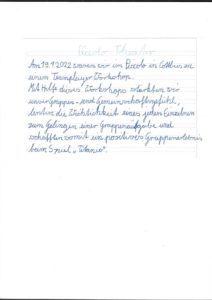 Piccolo Theater
Am 19.9.2022 waren wir im Piccolo in Cottbus zu
einem Teamplayer Workshop.
Mit Hilfe dieses Workshops stärkten wir
unser Gruppen- und Gemeinschaftsgefühl,
lernten die Wichtigkeit eines jeden Einzelnen
zum Gelingen einer Gruppenaufgabe und
schafften somit ein positives Gruppenerlebnis
beim Spiel „Titanic".